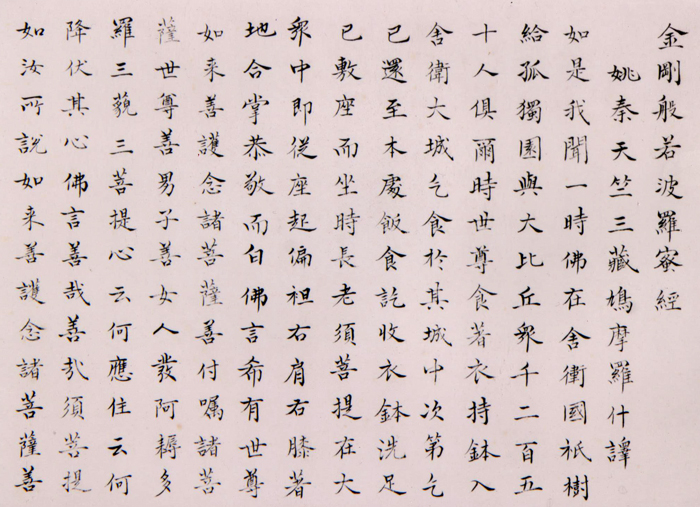 金剛般若波羅蜜經
姚秦天竺三藏鳩摩羅什譯
如是我聞一時佛在舍衛國祇樹
給孤獨園與大比丘眾千二百五
十人俱爾時世尊食著衣持鉢入
舍衛大城乞食於其城中次第乞
已還至本處飯食訖收衣鉢洗足
已敷座而坐時長老須菩提在大
眾中即從座起偏袒右肩右膝著
地合掌恭敬而白佛言希有世尊
如来善護念諸菩薩善付囑諸菩
薩世尊善男子善女人發阿耨多
羅三藐三菩提心云何應住云何
降伏其心佛言善哉善哉須菩提
如汝所說如来善護念諸菩薩善